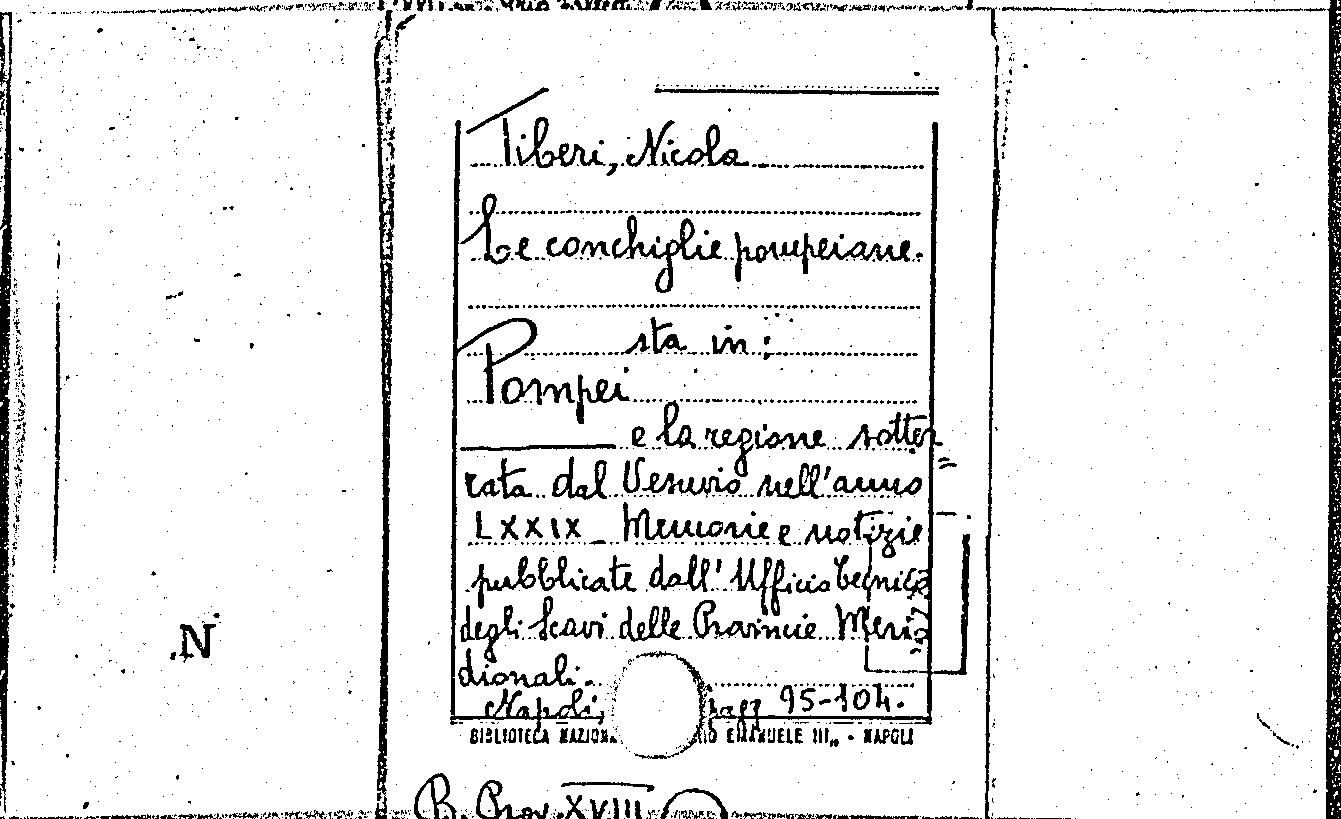 Tiberi, Nicola
Le conchiglie pompeiane.
sta in:
Pompei
e la regione sotter
rata dal Vesuvio nell'anno
LXXIX_ Memorie e notizie
pubblicate dall' Ufficio tecnico
degli Scavi delle Provincie Meri
dionali.
Napoli, pagg 95-104.
BIBLIOTECA EMANUELE III„ - NAPOLI
N
B. Prov. XVIII